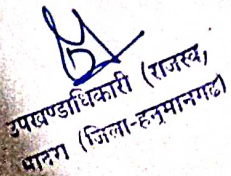 उपखण्डाधिकारी (राजस्व,
(जिला-हनुमानगढ)